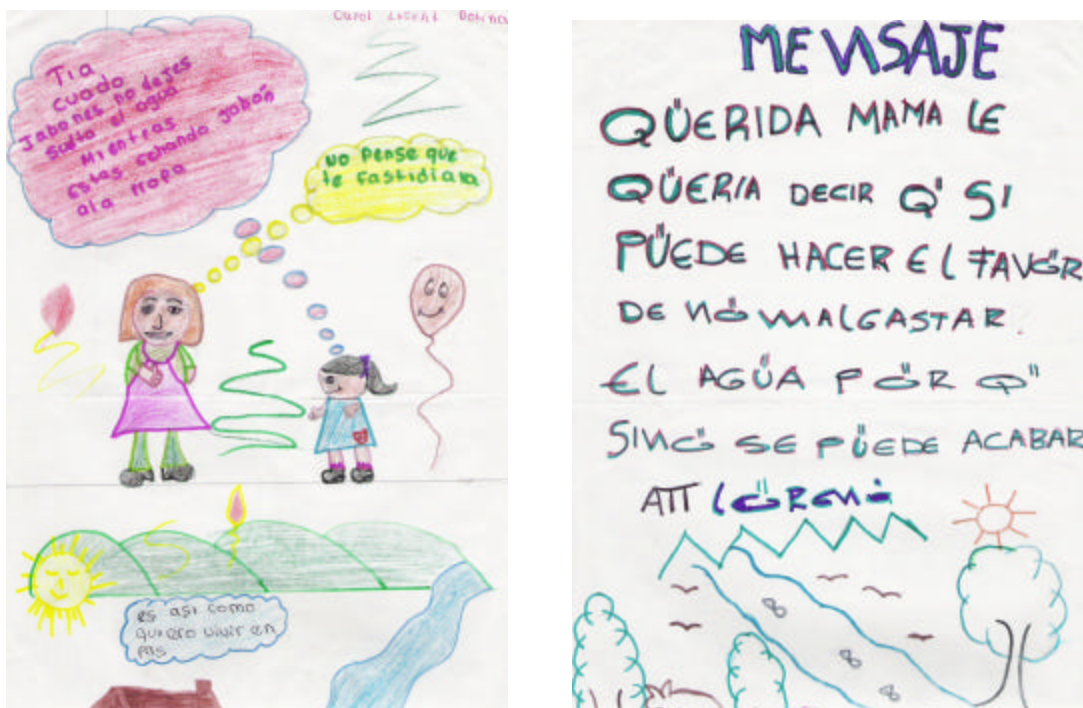 Carol
Tia
cuado
Jabones no dejes
suelto el agua
Mientras
estas echando jabón
ala rropa
No pense que
te fastidiara
es asi como
quiero vivir en
pas
MENSAJE
QÜERIDA MAMA LE
QÜERIA DECIR Q' SI
PÜEDE HACER EL FAVÖR
DE NÖ MALGASTAR
EL AGÜA PÖR Q"
SINÖ SE PÜEDE ACABAR
ATT LÖRENA